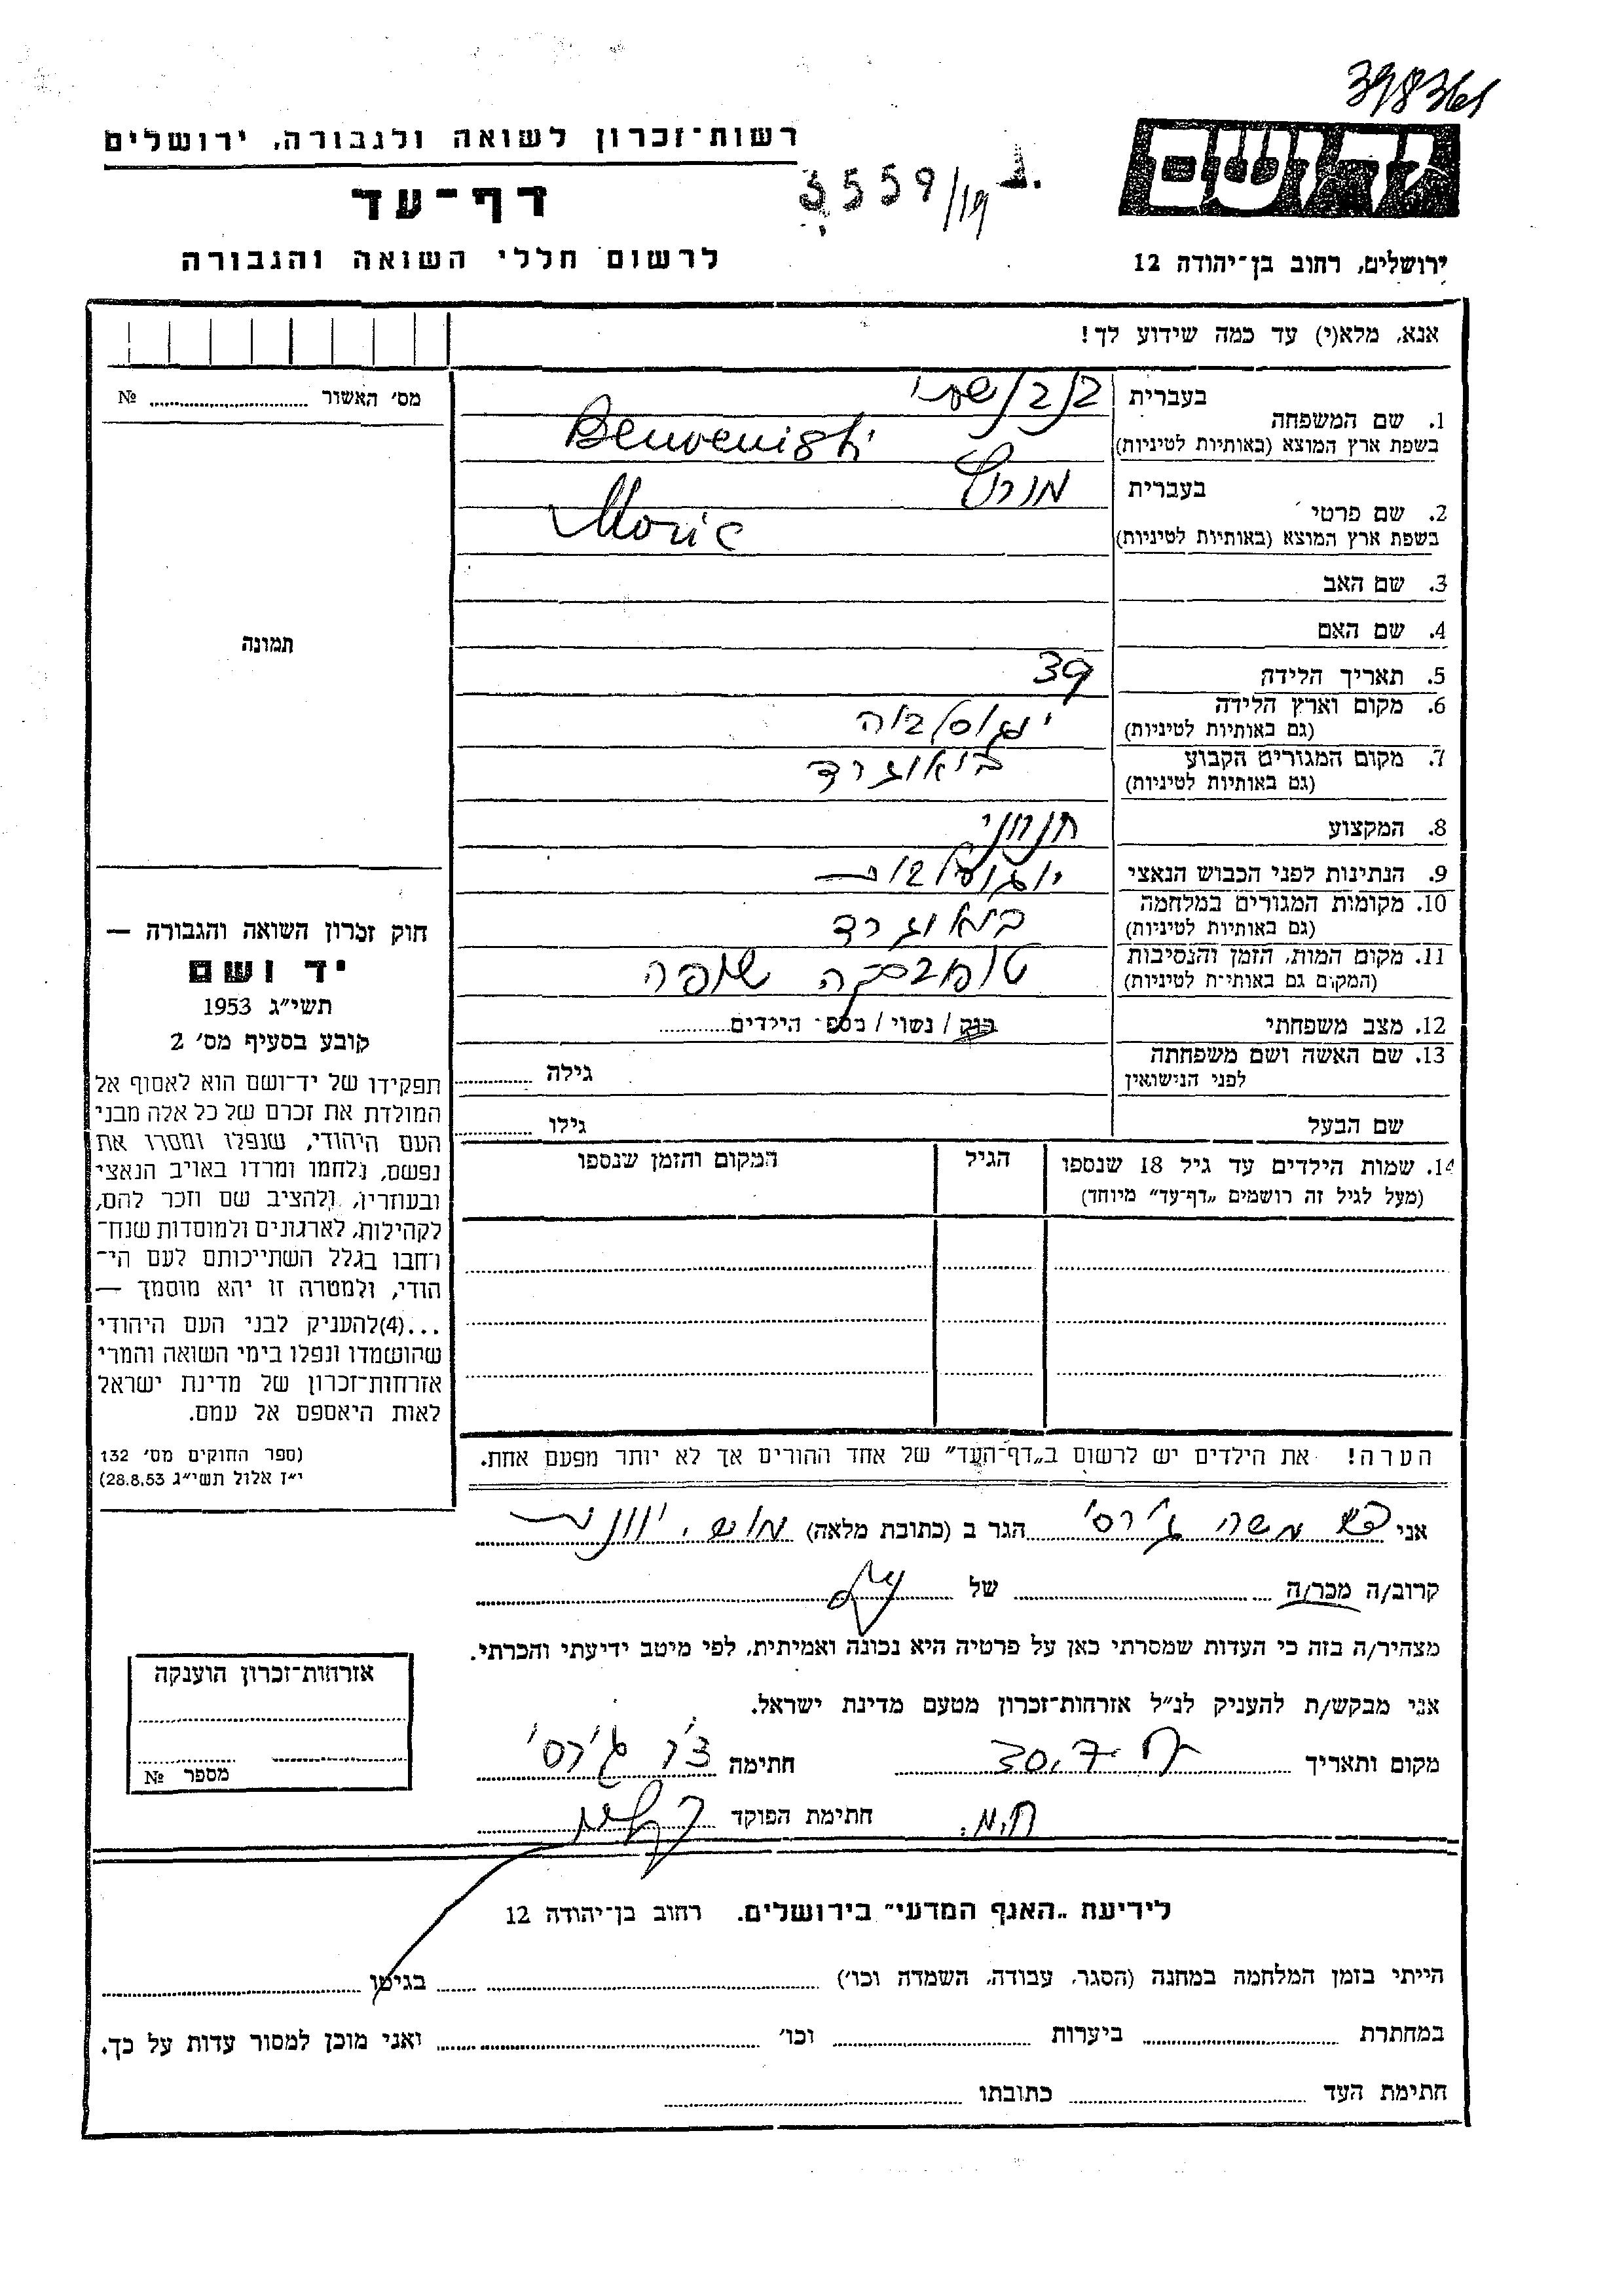 39836
יד ושם
רשות־זכרון לשואה ולגבורה, ירושלים
3559/19
דף־עד
לרשום חללי השואה והגבורה
ירושלים, רחוב בן־יהודה 12
אנא, מלא(י) עד כמה שידוע לך!
מס׳ האשור № 
תמונה
1. שם המשפחה
בעברית
בשפת ארץ המוצא (באותיות לטיניות) Benvenisti
2. שם פרטי
בעברית מוריץ
בשפת ארץ המוצא (באותיות לטיניות) Moric
3. שם האב
4. שם האם
5. תאריך הלידה 39
6. מקום וארץ הלידה יוגוסלביה
(גם באותיות לטיניות)
7. מקום המגורים הקבוע ביאוגרד
(גם באותיות לטיניות)
8. המקצוע חנוני
9. הנתינות לפני הכבוש הנאצי יוגוסלבית
10. מקומות המגורים במלחמה ביאוגרד
(גם באותיות לטיניות)
11. מקום המות, הזמן והנסיבות טופובסקה שופה
(המקום גם באותיות לטיניות)
12. מצב משפחתי רוק / נשוי / מספ׳ הילדים
13. שם האשה ושם משפחתה גילה
לפני הנישואין
שם הבעל גילו
14. שמות הילדים עד גיל 18 שנספו הגיל המקום והזמן שנספו
(מעל לגיל זה רושמים „דף־עד״ מיוחד)
הערה! את הילדים יש לרשום ב„דף־העד״ של אחד ההורים אך לא יותר מפעם אחת.
חוק זכרון השואה והגבורה —
יד ושם
תשי״ג 1953
קובע בסעיף מס׳ 2
תפקידו של יד־ושם הוא לאסוף אל
המולדת את זכרם של כל אלה מבני
העם היהודי, שנפלו ומסרו את
נפשם, נלחמו ומרדו באויב הנאצי
ובעוזריו, ולהציב שם וזכר להם,
לקהילות, לארגונים ולמוסדות שנח־
רבו בגלל השתייכותם לעם הי־
הודי, ולמטרה זו יהא מוסמך —
...(4)להעניק לבני העם היהודי
שהושמדו ונפלו בימי השואה והמרי
אזרחות־זכרון של מדינת ישראל
לאות היאספם אל עמם.
(ספר החוקים מס׳ 132
י״ז אלול תשי״ג 28.8.53)
אני משה ג׳רסי הגר ב (כתובת מלאה)
קרוב/ה מכר/ה של
מצהיר/ה בזה כי העדות שמסרתי כאן על פרטיה היא נכונה ואמיתית, לפי מיטב ידיעתי והכרתי.
אני מבקש/ת להעניק לנ״ל אזרחות־זכרון מטעם מדינת ישראל.
מקום ותאריך 30.7 חתימה ג׳רסי
חתימת הפוקד
אזרחות־זכרון הוענקה
מספר №
לידיעת „האגף המדעי״ בירושלים. רחוב בן־יהודה 12
הייתי בזמן המלחמה במחנה (הסגר, עבודה, השמדה וכו׳) בגיטו
במחתרת ביערות וכו׳ ואני מוכן למסור עדות על כך.
חתימת העד כתובתו